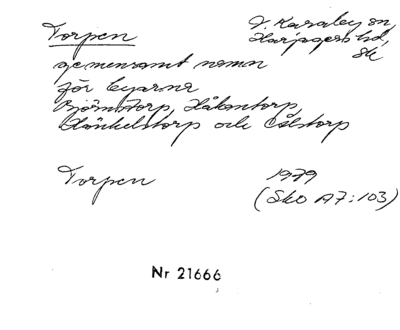 Torpen
V. Karaby sn,
Harjagers hd,
Sk
gemensamt namn
för byarna
Björnstorp, Håkantorp,
Hänkelstorp och Ålstorp
Torpen
1979
(Sko A7:103)
Nr 21666